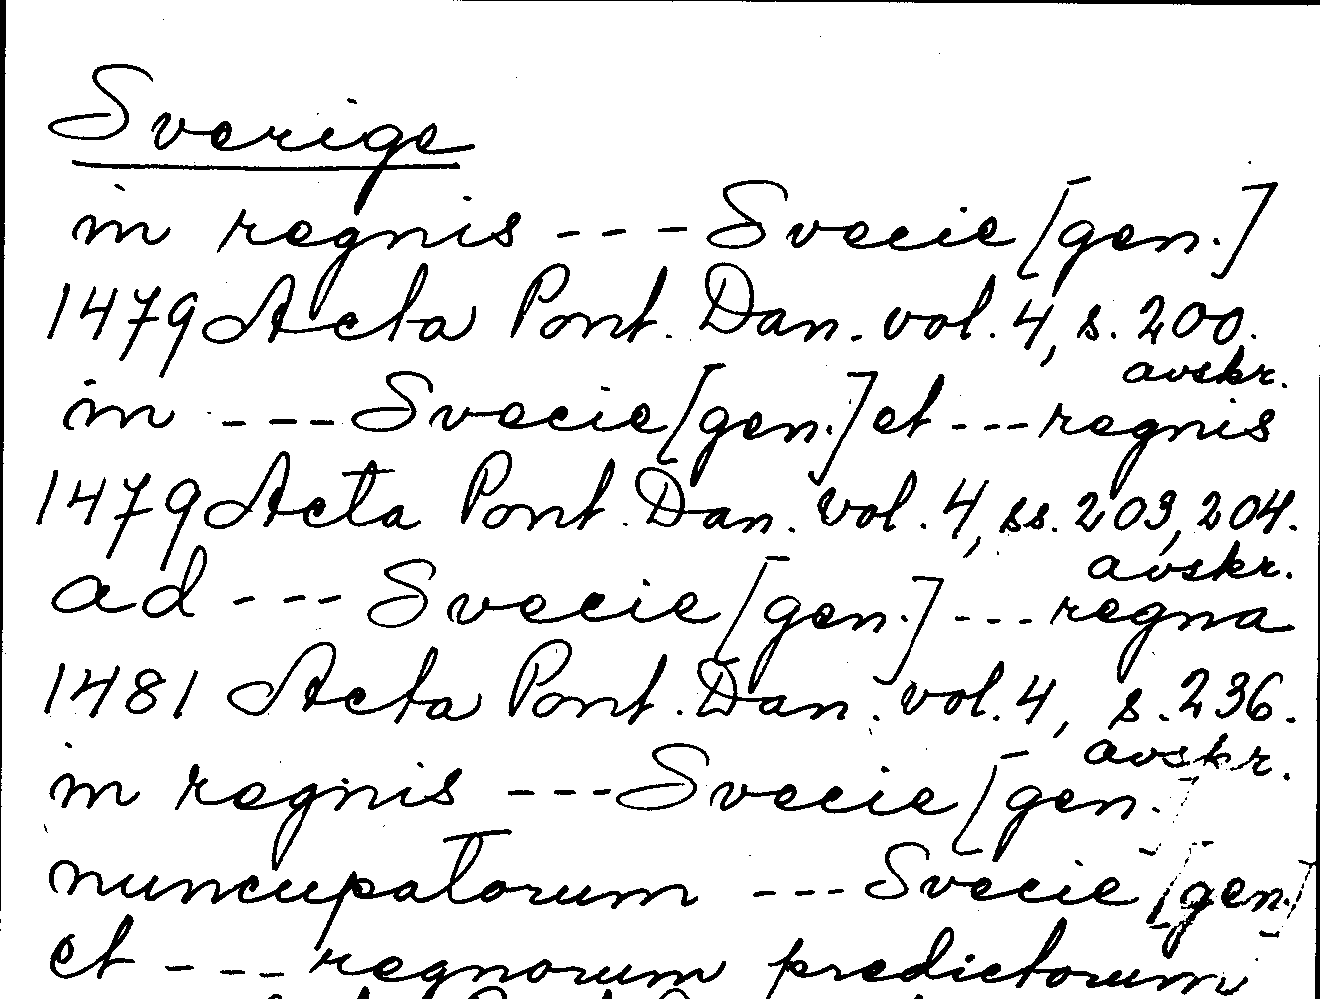 Sverige
in regnis --- Svecie [gen.]
1479 Acta Pont. Dan. vol. 4, s. 200.
avskr.
in --- Svecie [gen.] et --- regnis
1479 Acta Pont. Dan. vol. 4, ss. 203, 204.
avskr.
ad --- Svecie [gen.] --- regna
1481 Acta Pont. Dan. vol. 4, s. 236.
avskr.
in regnis --- Svecie [gen.]
nuncupatorum --- Svecie [gen.]
et --- regnorum predictorum